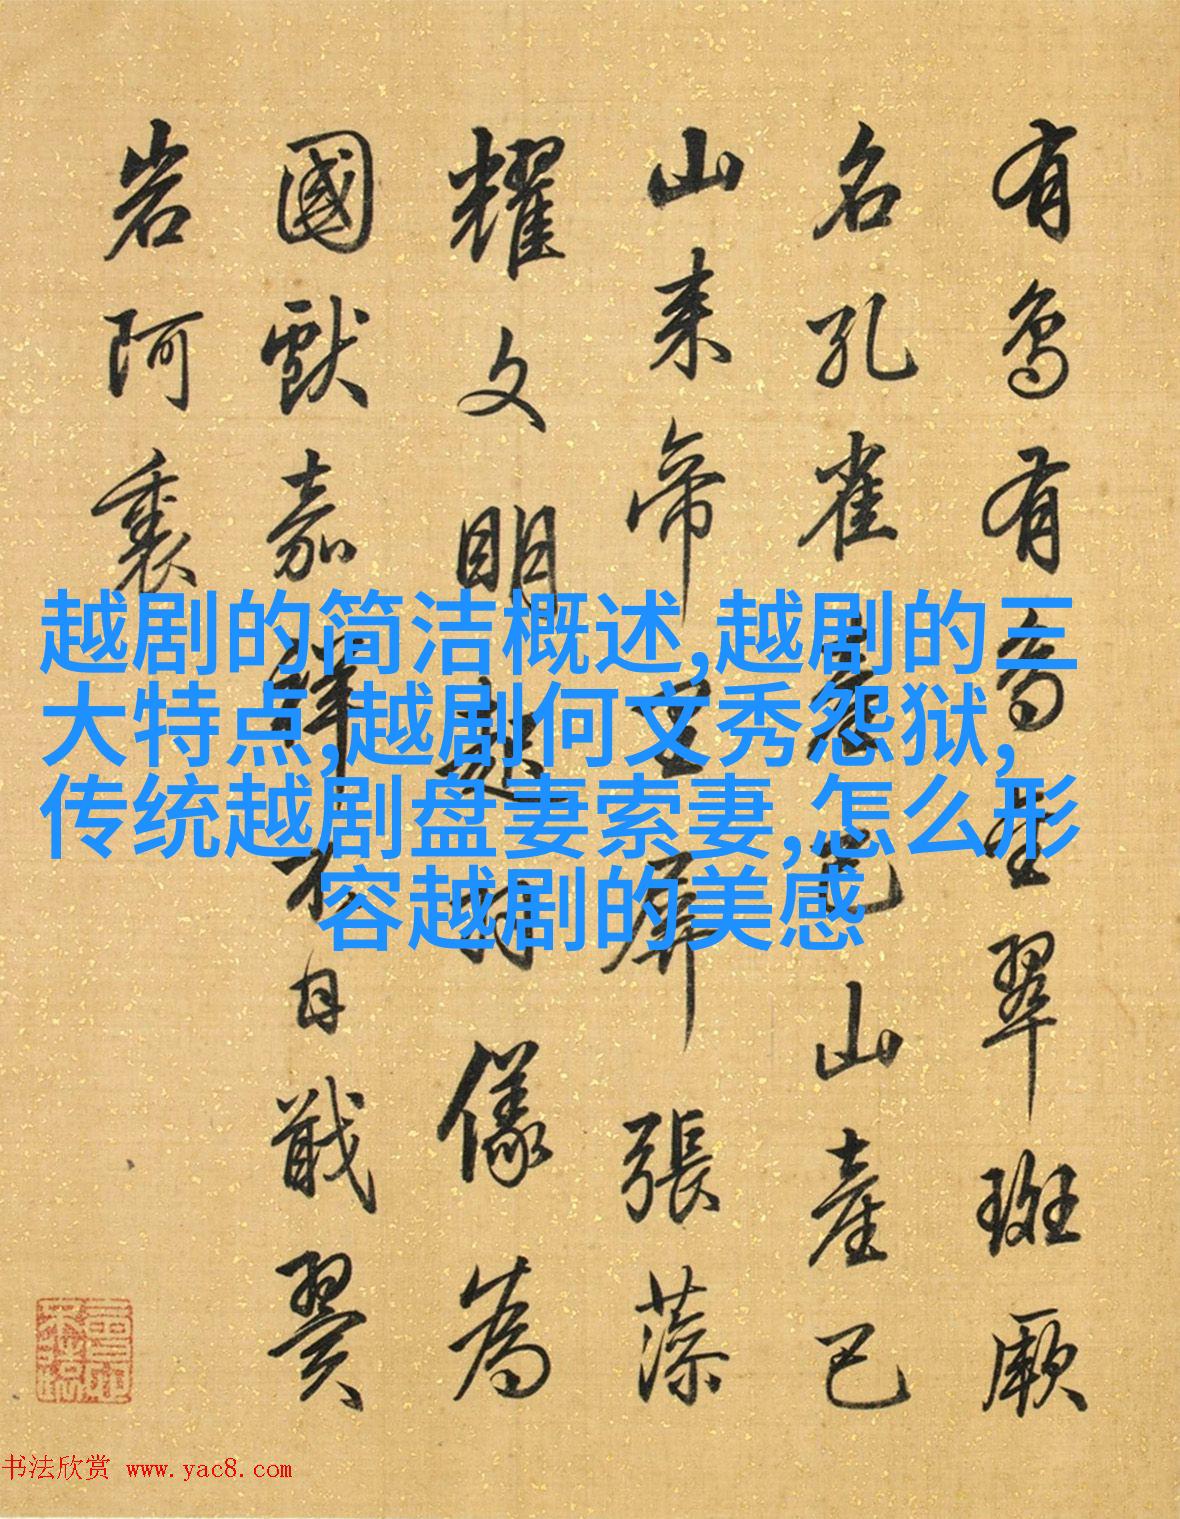 有鳥有鳥生翠斑厥
名孔雀山產已
山来帝王屏張藻
耀文明起羽儀為
國獻嘉祥不日戢翼
岩阿裏
越剧的简洁概述,越剧的三
大特点,越剧何文秀怨狱,
传统越剧盘妻索妻,怎么形
容越剧的美感
书法欣赏 www.yac8.com